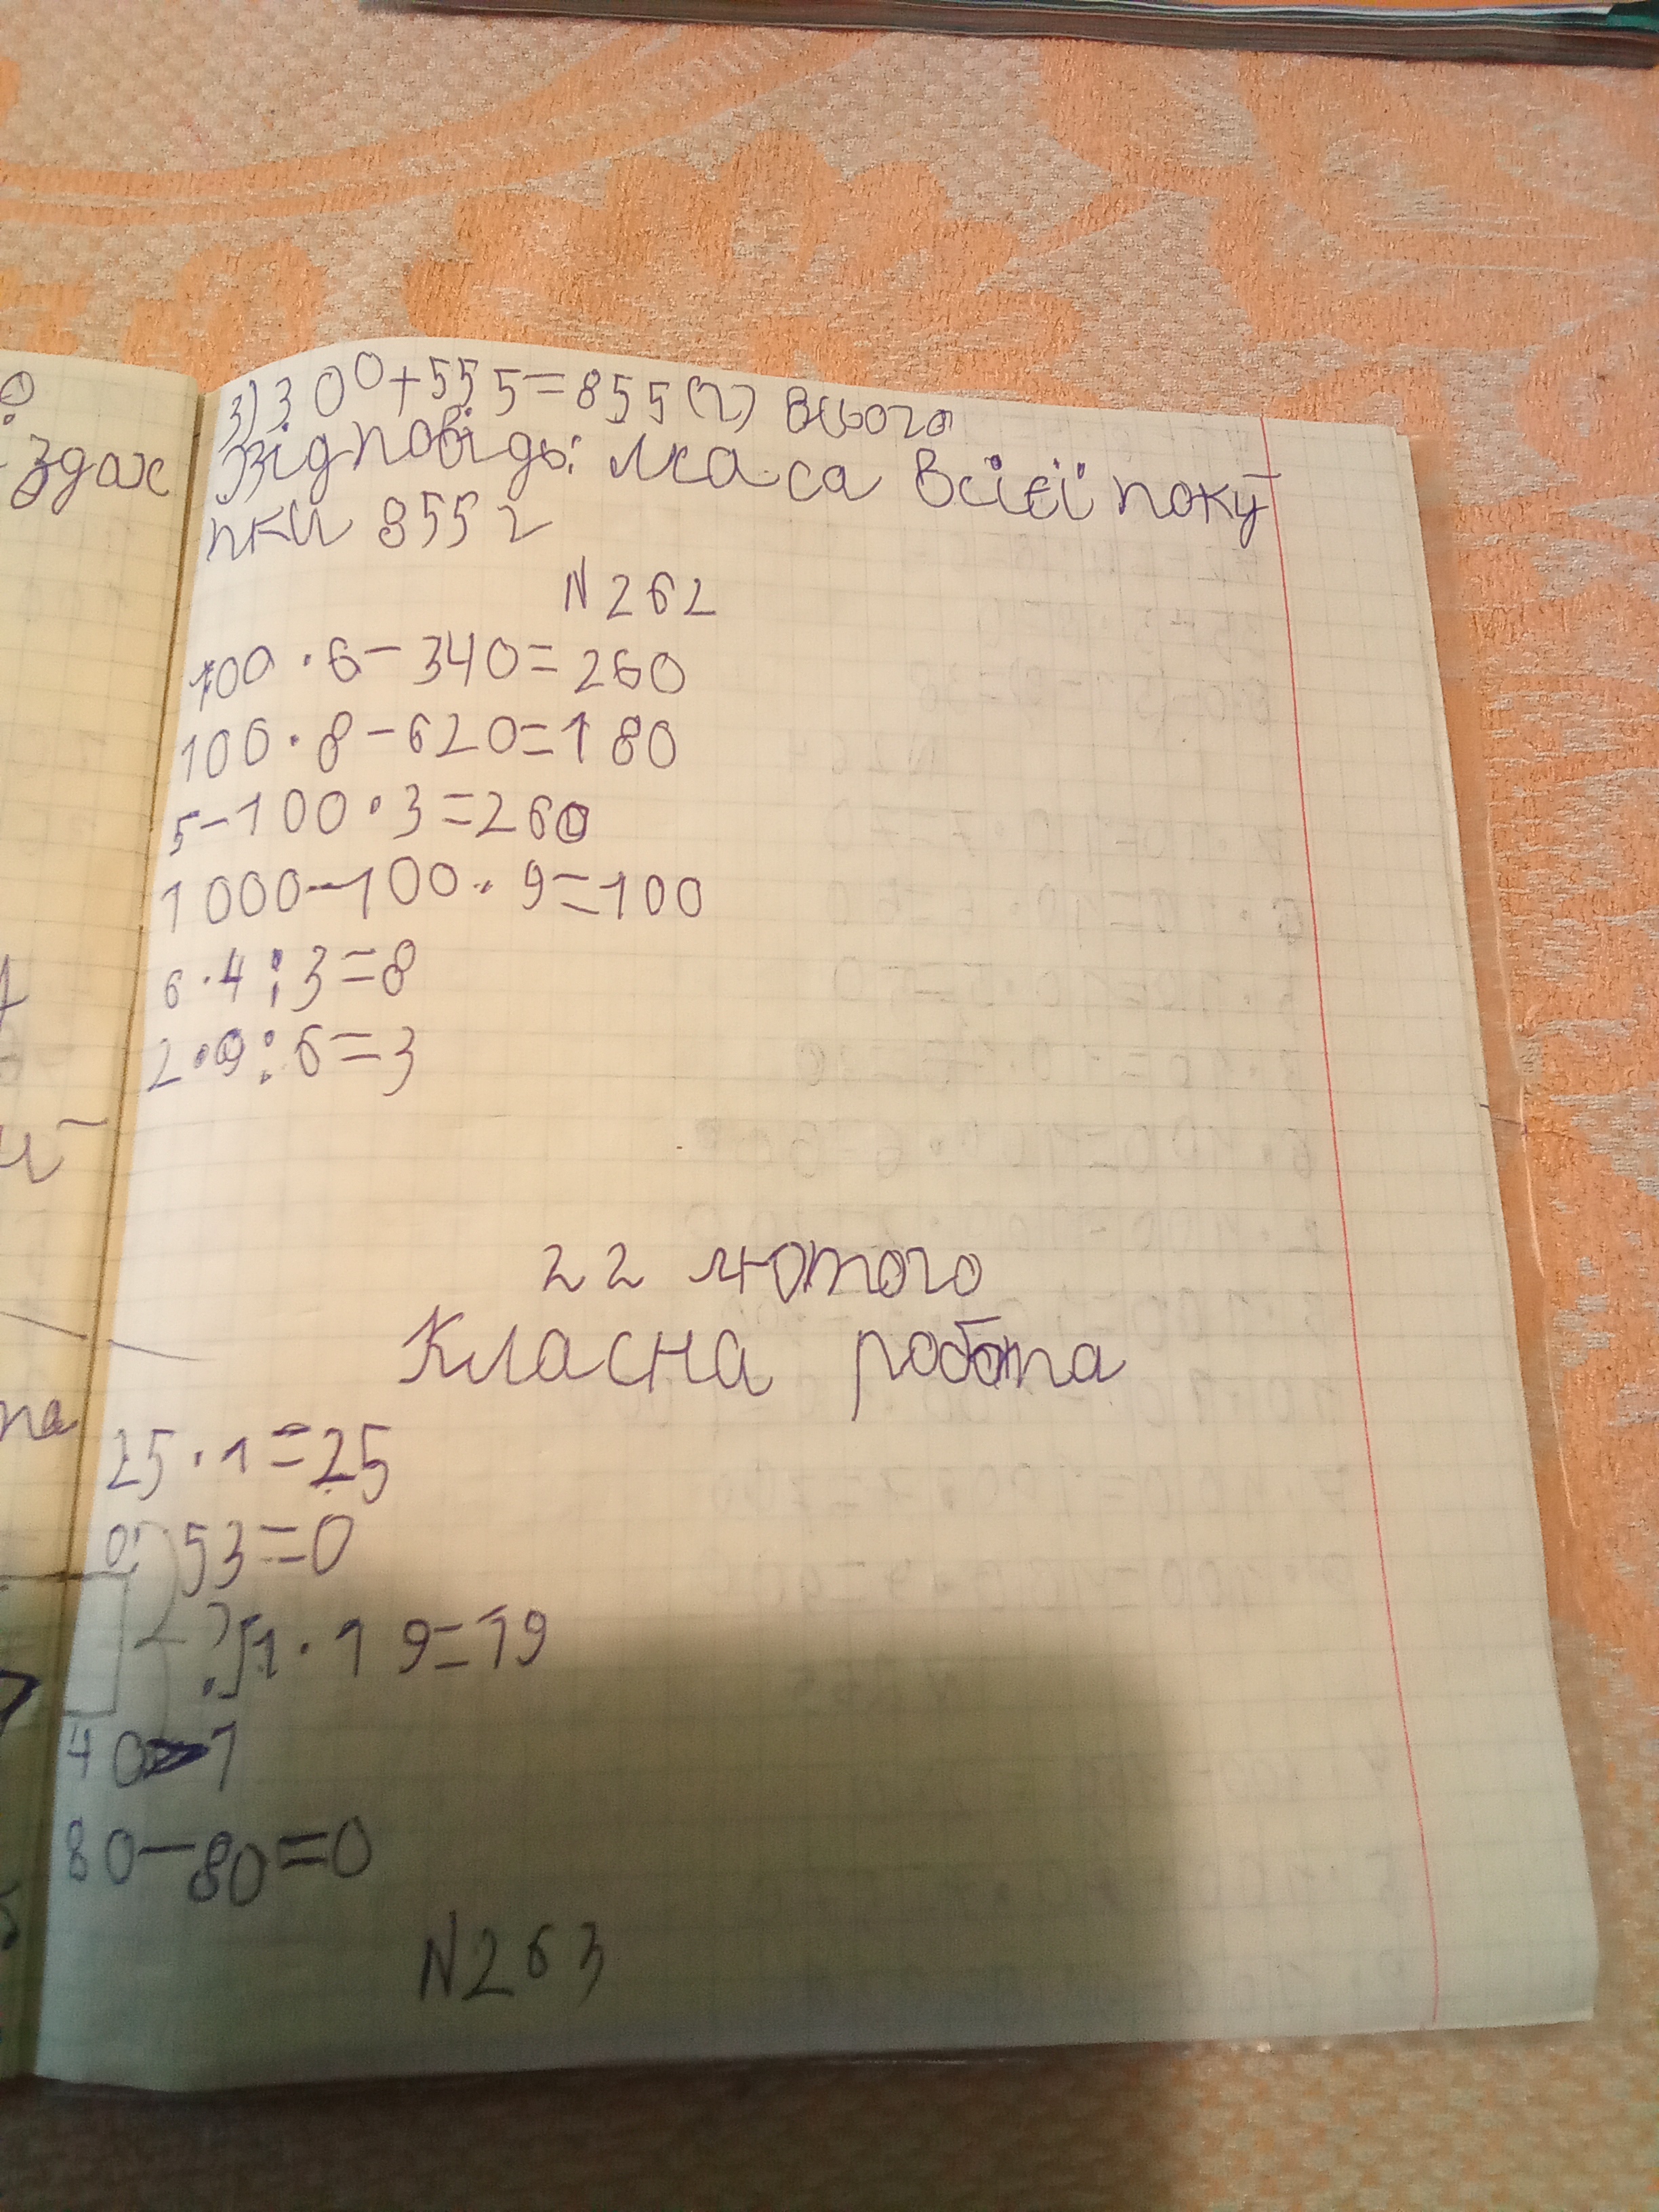 3) 300+555=855(г) всього
Відповідь: маса всієї поку
пки 855 г
N 262
100·6-340=260
100·8-620=180
5-100·3=260
1000-100·9=100
6·4:3=8
2·9:6=3
22 лютого
Класна робота
25·1=25
0: 53=0
1·19=19
40>1
80-80=0
N263